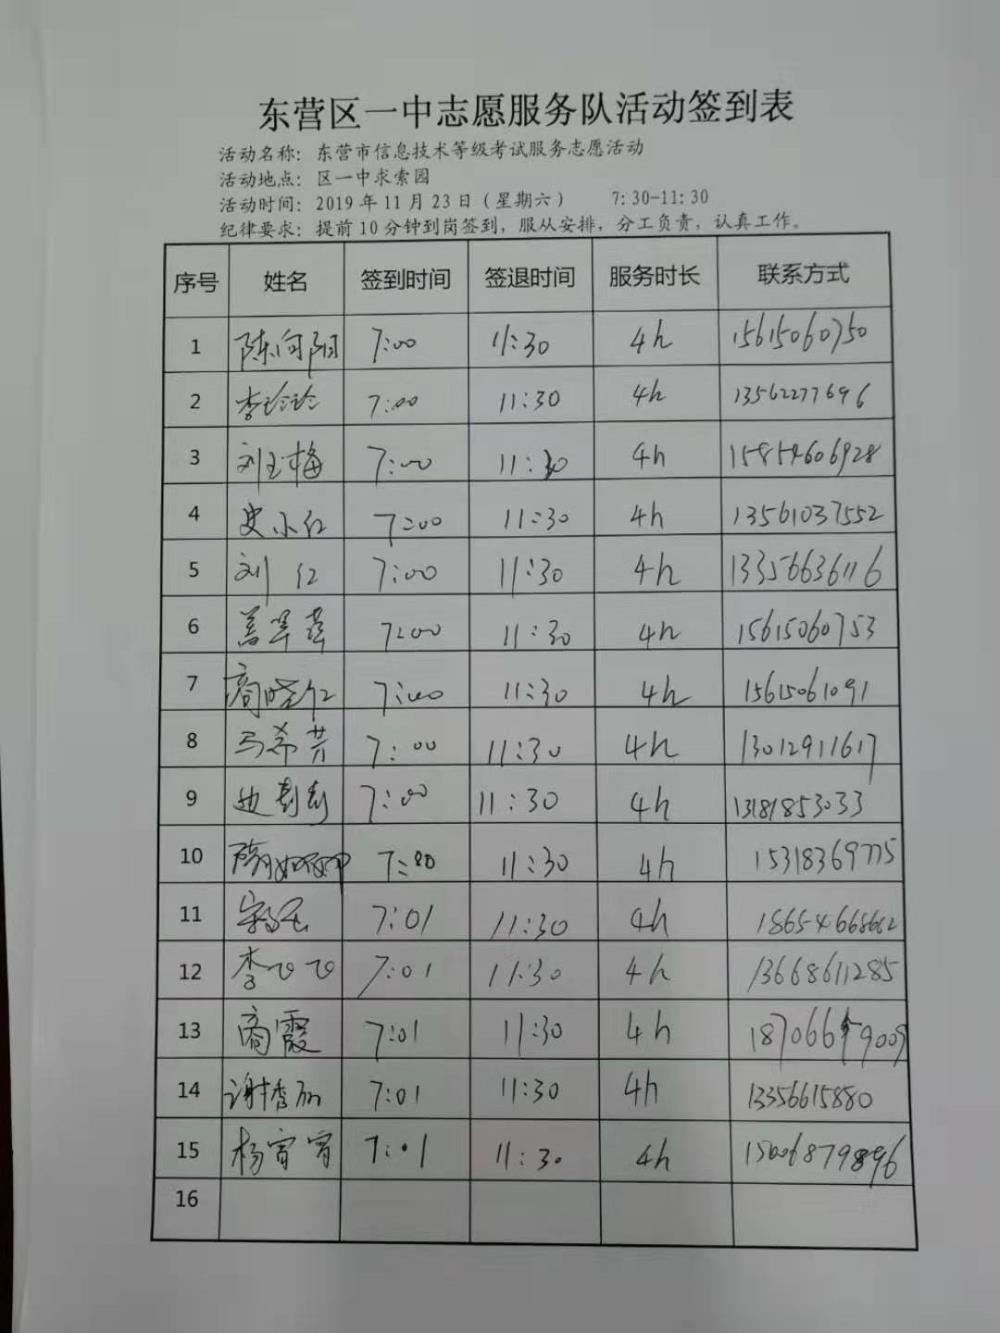 东营区一中志愿服务队活动签到表
活动名称：东营市信息技术等级考试服务志愿活动
活动地点：区一中求索园
活动时间：2019年11月23日（星期六） 7:30-11:30
纪律要求：提前10分钟到岗签到，服从安排，分工负责，认真工作。
序号 姓名 签到时间 签退时间 服务时长 联系方式
1 陈向阳 7:00 11:30 4h 15615060750
2 李玲玲 7:00 11:30 4h 13562277696
3 刘玉梅 7:00 11:30 4h 15854606928
4 史小红 7:00 11:30 4h 13561037552
5 刘红 7:00 11:30 4h 13356636116
6 7:00 11:30 4h 15615060753
7 商晓红 7:00 11:30 4h 15615061091
8 马希芳 7:00 11:30 4h 13012911617
9 7:00 11:30 4h 13181853033
10 7:00 11:30 4h 15318369775
11 7:01 11:30 4h
12 李飞飞 7:01 11:30 4h 13668611285
13 商霞 7:01 11:30 4h
14 谢秀丽 7:01 11:30 4h 13356615880
15 杨宵宵 7:01 11:30 4h 15006879896
16